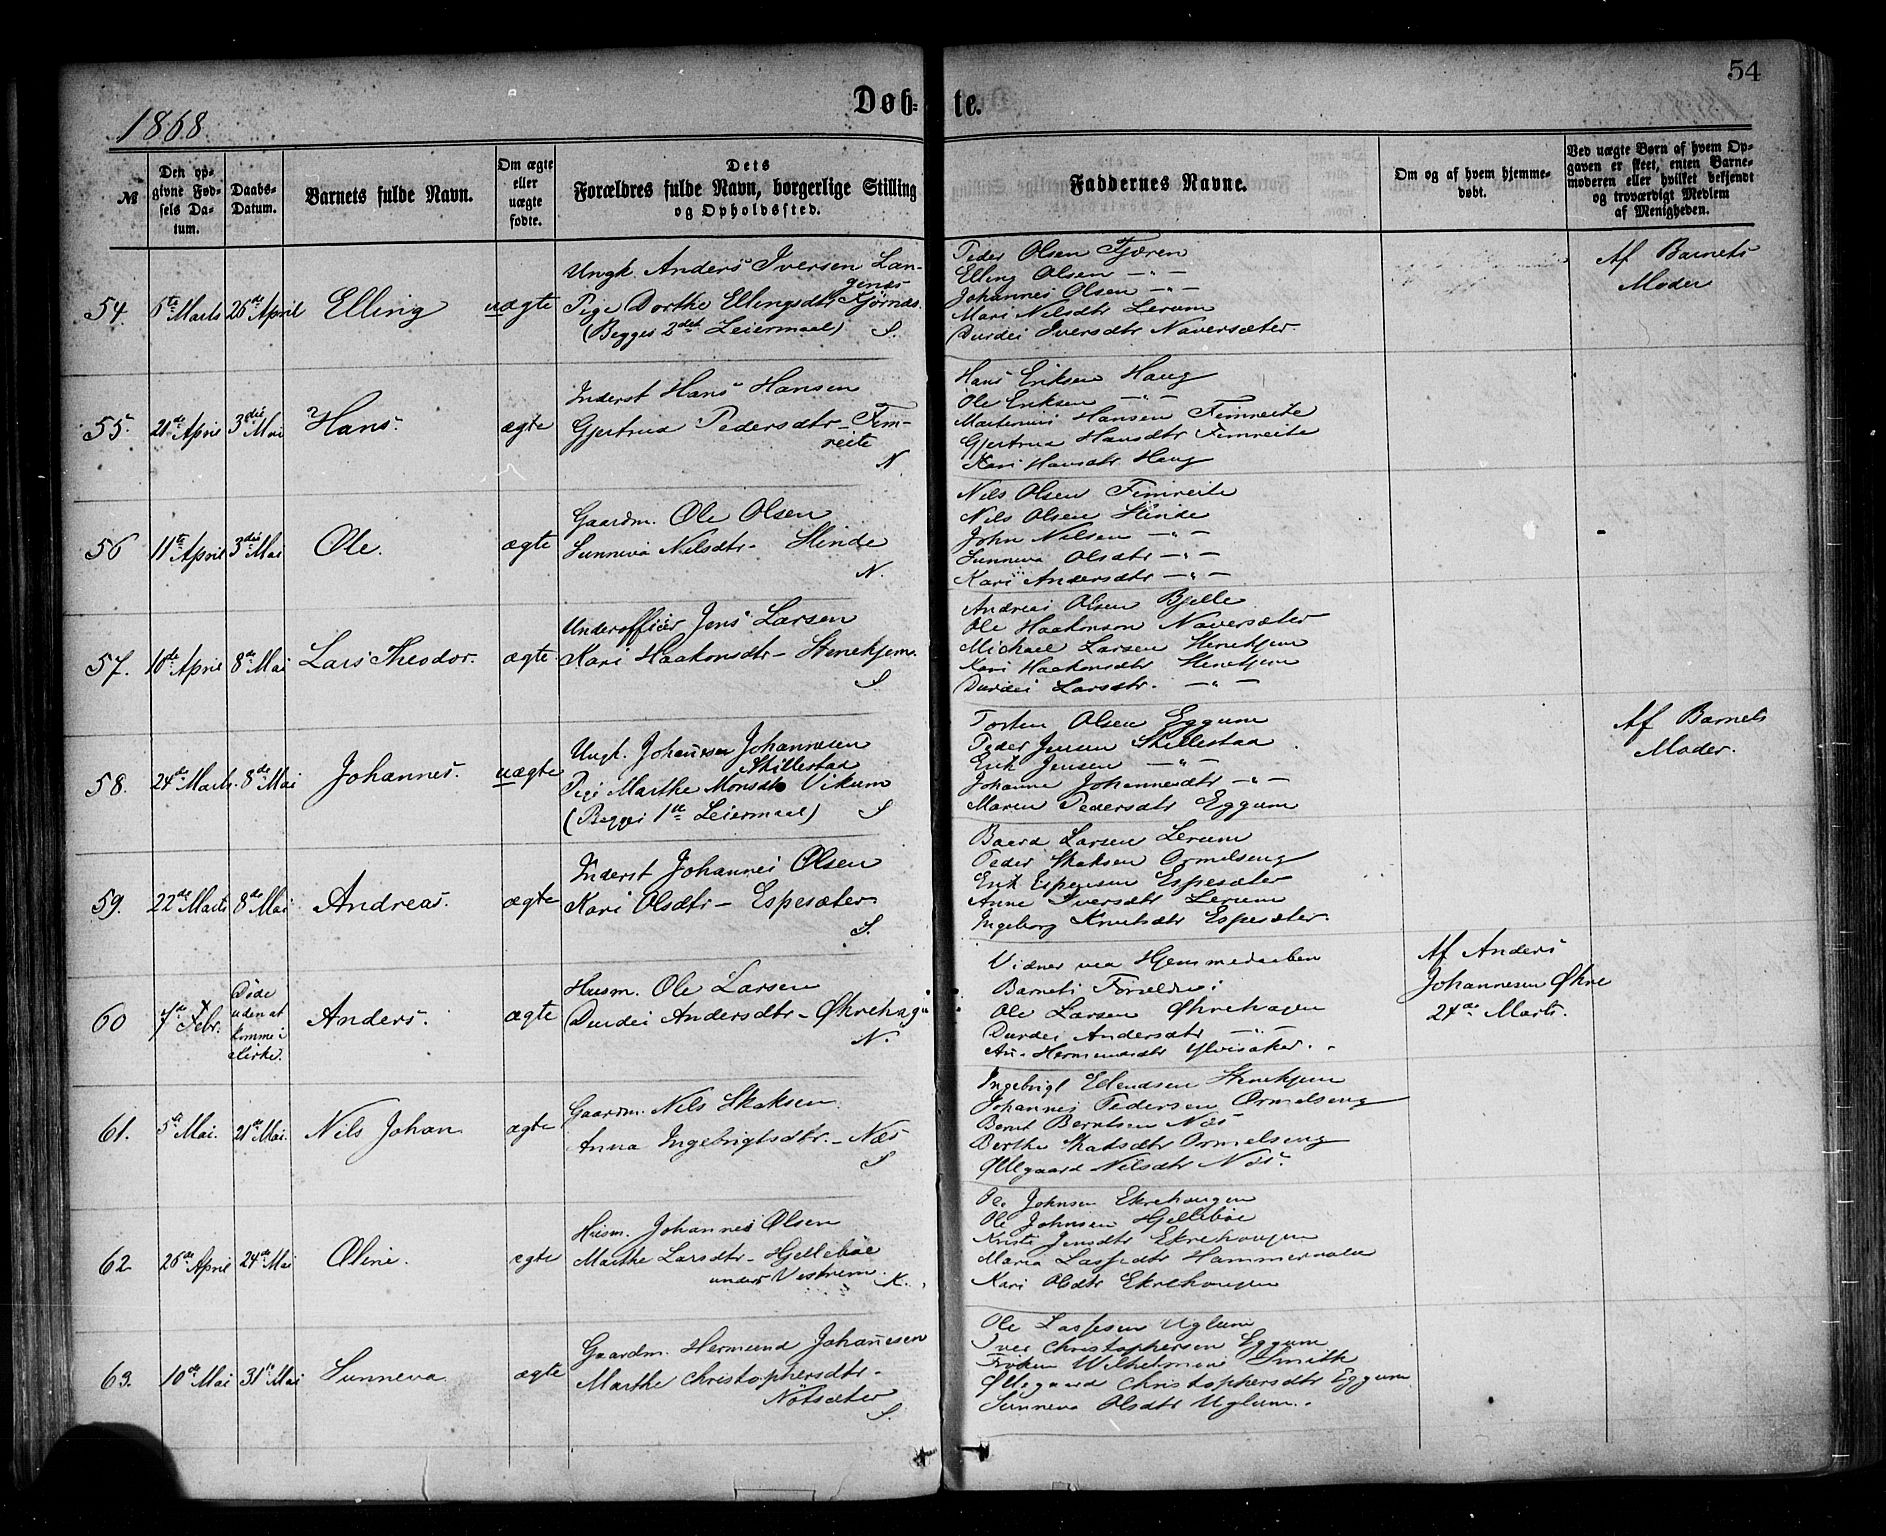 54
1868
Døb- te.
№
Den op-
givne Fød-
sels Da-
tum.
Daabs-
Datum.
Barnets fulde Navn.
Om ægte
eller
uægte
fødte.
Dets
Forældres fulde Navn, borgerlige Stilling
og Opholdssted.
Faddernes Navne.
Om og af hvem hjemme-
døbt.
Ved uægte Børn af hvem Op-
gaven er skeet, enten Barne-
moderen eller hvilket bekjendt
og troværdigt Medlem
af Menigheden.
54
5te Marts
26de April
Elling
uægte
Ungk Anders Iversen Lan-
genæs
Pige Dorthe Ellingsdtr Fjørnæs.
(Begges 2det Leiermaal) S.
Peder Olsen Fjæren
Elling Olsen —"—
Johannes Olsen —"—
Mari Nilsdtr Lerum
Durdei Iversdtr Navarsæter.
Af Barnets
Moder
55.
21de April
3die Mai
Hans.
ægte
Inderst Hans Hansen
Gjertrud Pedersdtr - Fim-
reite
N.
Hans Eriksen Haug
Ole Eriksen —"—
Martinus Hansen Fimreite
Gjertrud Hansdtr Fimreite
Kari Hansdtr Haug
56
11te April
3die Mai
Ole.
ægte
Gaardm. Ole Olsen
Sunneva Nilsdtr - Slinde
N.
Nils Olsen Fimreite
Nils Olsen Slinde
John Nilsen —"—
Sunneva Olsdtr —"—
Kari Andersdtr —"—
57.
10de April
8de Mai
Lars Theodor.
ægte
Underofficer Jens Larsen
Kari Haakonsdtr - Stenehjem.
S
Andreas Olsen Bjelle
Ole Haakonson Navarsæter
Michael Larsen Stenehjem
Kari Haakonsdtr Stenehjem
Durdei Larsdtr. —"—
58.
24de Marts.
8de Mai
Johannes.
uægte
Ungk. Johannes Johannesen
Skillestad
Pige Marthe Monsdtr Vikum
(Begges 1ste Leiermaal) S
Torsten Olsen Eggum
Peder Jensen Skillestad
Erik Jensen —"—
Johanne Johannesdtr —"—
Maren Pedersdtr Eggum
Af Barnets
Moder.
59.
22de Marts
8de Mai
Andreas.
ægte
Inderst Johannes Olsen
Kari Olsdtr - Espesæter
S.
Baard Larsen Lerum
Peder Skaksen Ormelseng
Erik Espensen Espesæter
Anne Iversdtr Lerum
Ingeborg Knutsdtr Espesæter.
60
7de Febr.
Døde
uden at
komme i
Kirke.
Anders.
ægte
Husm. Ole Larsen
Durdei Andersdtr - Øhrehagen
N.
Vidner ved Hjemmedaaben
Barnets Forældre:
Ole Larsen Øhrehagen
Durdei Andersdtr —"—
An. Hermundsdtr Ylvisaker.
Af Anders
Johannesen Øhre
24de Marts.
61.
5te Mai.
21de Mai.
Nils Johan
ægte
Gaardm. Nils Skaksen.
Anna Ingebrigtsdtr. - Næs
S
Ingebrigt Erlendsen Stenehjem
Johannes Pedersen Ormelseng
Bernt Berntsen Næs
Berthe Skaksdtr Ormelseng
Øllegaard Nilsdtr Næs.
62
26de April
24de Mai
Oline.
ægte
Husm. Johannes Olsen
Marthe Larsdtr - Hjelleböe
under Vestrem.
K.
Ole Johnsen Ekrehaugen
Ole Johnsen Hjelleböe
Kristi Jensdtr Ekrehaugen
Maria Lassesdtr
Kari Olsdtr Ekrehaugen
63.
10de Mai
31te Mai
Sunneva
ægte
Gaardm. Hermund Johannesen
Marthe Christophersdtr -
Nötsæter
S.
Ole Lassesen Uglum
Iver Christophersen Eggum
Frøken Wilhelmine Smith
Øllegaard Christophersdtr Eggum
Sunneva Olsdtr Uglum.